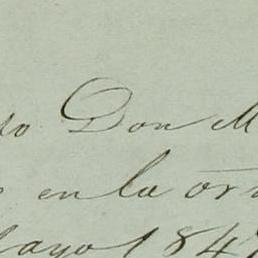 so Don M
en la or
Mayo 184